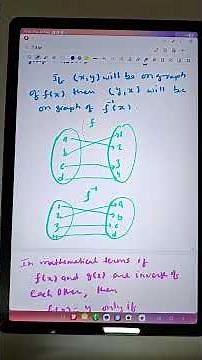 If (x,y) will be on graph
of f(x) then (y,x) will be
on graph of f⁻¹(x)
f
a 1
b 2
c 3
d 4
f⁻¹
1 a
2 b
3 c
4 d
In mathematical terms if
f(x) and g(x) are inverse of
each other, then
f(x) = y only if